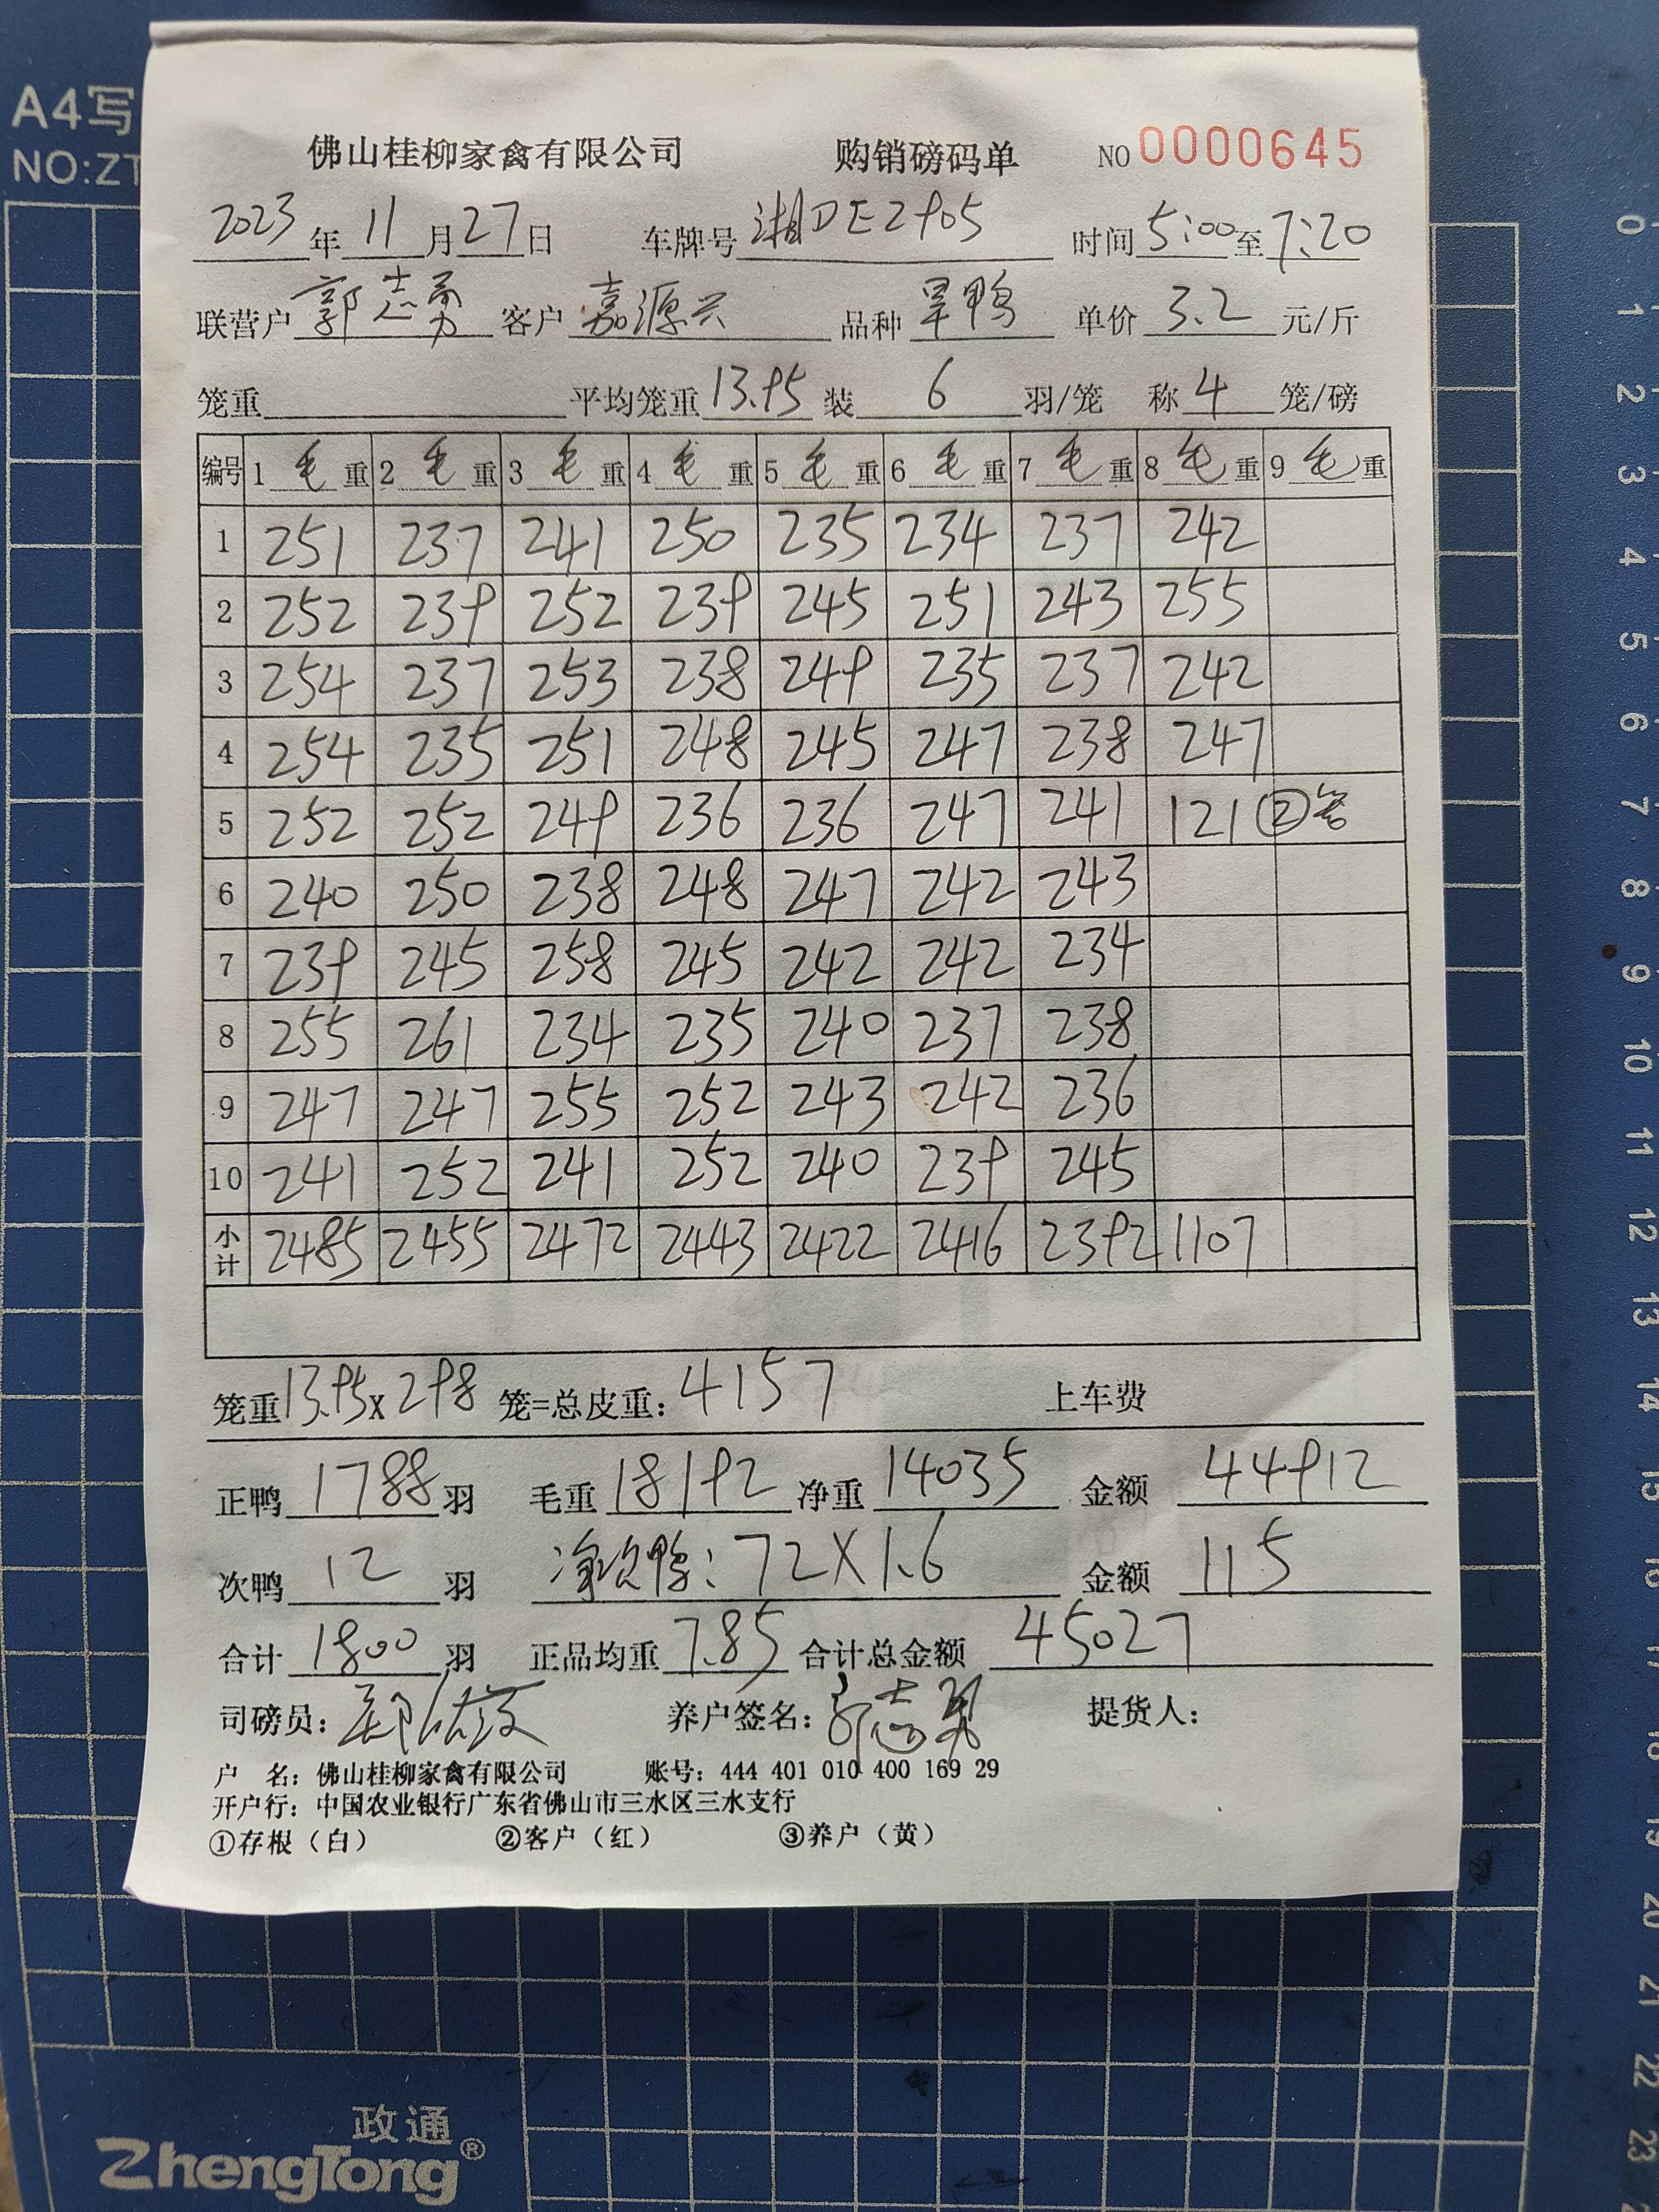 A4写
NO:ZT
佛山桂柳家禽有限公司 购销磅码单 NO 0000645
2023年11月27日 车牌号 湘DE2905 时间 5:00至7:20
联营户 郭志勇 客户 嘉源兴 品种 旱鸭 单价 3.2 元/斤
笼重 平均笼重 13.95 装 6 羽/笼 称 4 笼/磅
编号 1 毛 重 2 毛 重 3 毛 重 4 毛 重 5 毛 重 6 毛 重 7 毛 重 8 毛 重 9 毛 重
1 251 237 241 250 235 234 237 242
2 252 239 252 239 245 251 243 255
3 254 237 253 238 249 235 237 242
4 254 235 251 248 245 247 238 247
5 252 252 249 236 236 247 241 121 ②
6 240 250 238 248 247 242 243
7 239 245 258 245 242 242 234
8 255 261 234 235 240 237 238
9 247 247 255 252 243 242 236
10 241 252 241 252 240 239 245
小计 2485 2455 2472 2443 2422 2416 2392 1107
笼重 13.95 x 298 笼=总皮重: 4157 上车费
正鸭 1788 羽 毛重 18192 净重 14035 金额 44912
次鸭 12 羽 净次鸭: 72X1.6 金额 115
合计 1800 羽 正品均重 7.85 合计总金额 45027
司磅员: 养户签名: 郭志勇 提货人:
户 名: 佛山桂柳家禽有限公司 账号: 444 401 010 400 169 29
开户行: 中国农业银行广东省佛山市三水区三水支行
①存根(白) ②客户(红) ③养户(黄)
政通
ZhengTong®
0
1
2
3
4
5
6
7
8
9
10
11
12
13
14
15
16
17
18
19
20
21
22
23